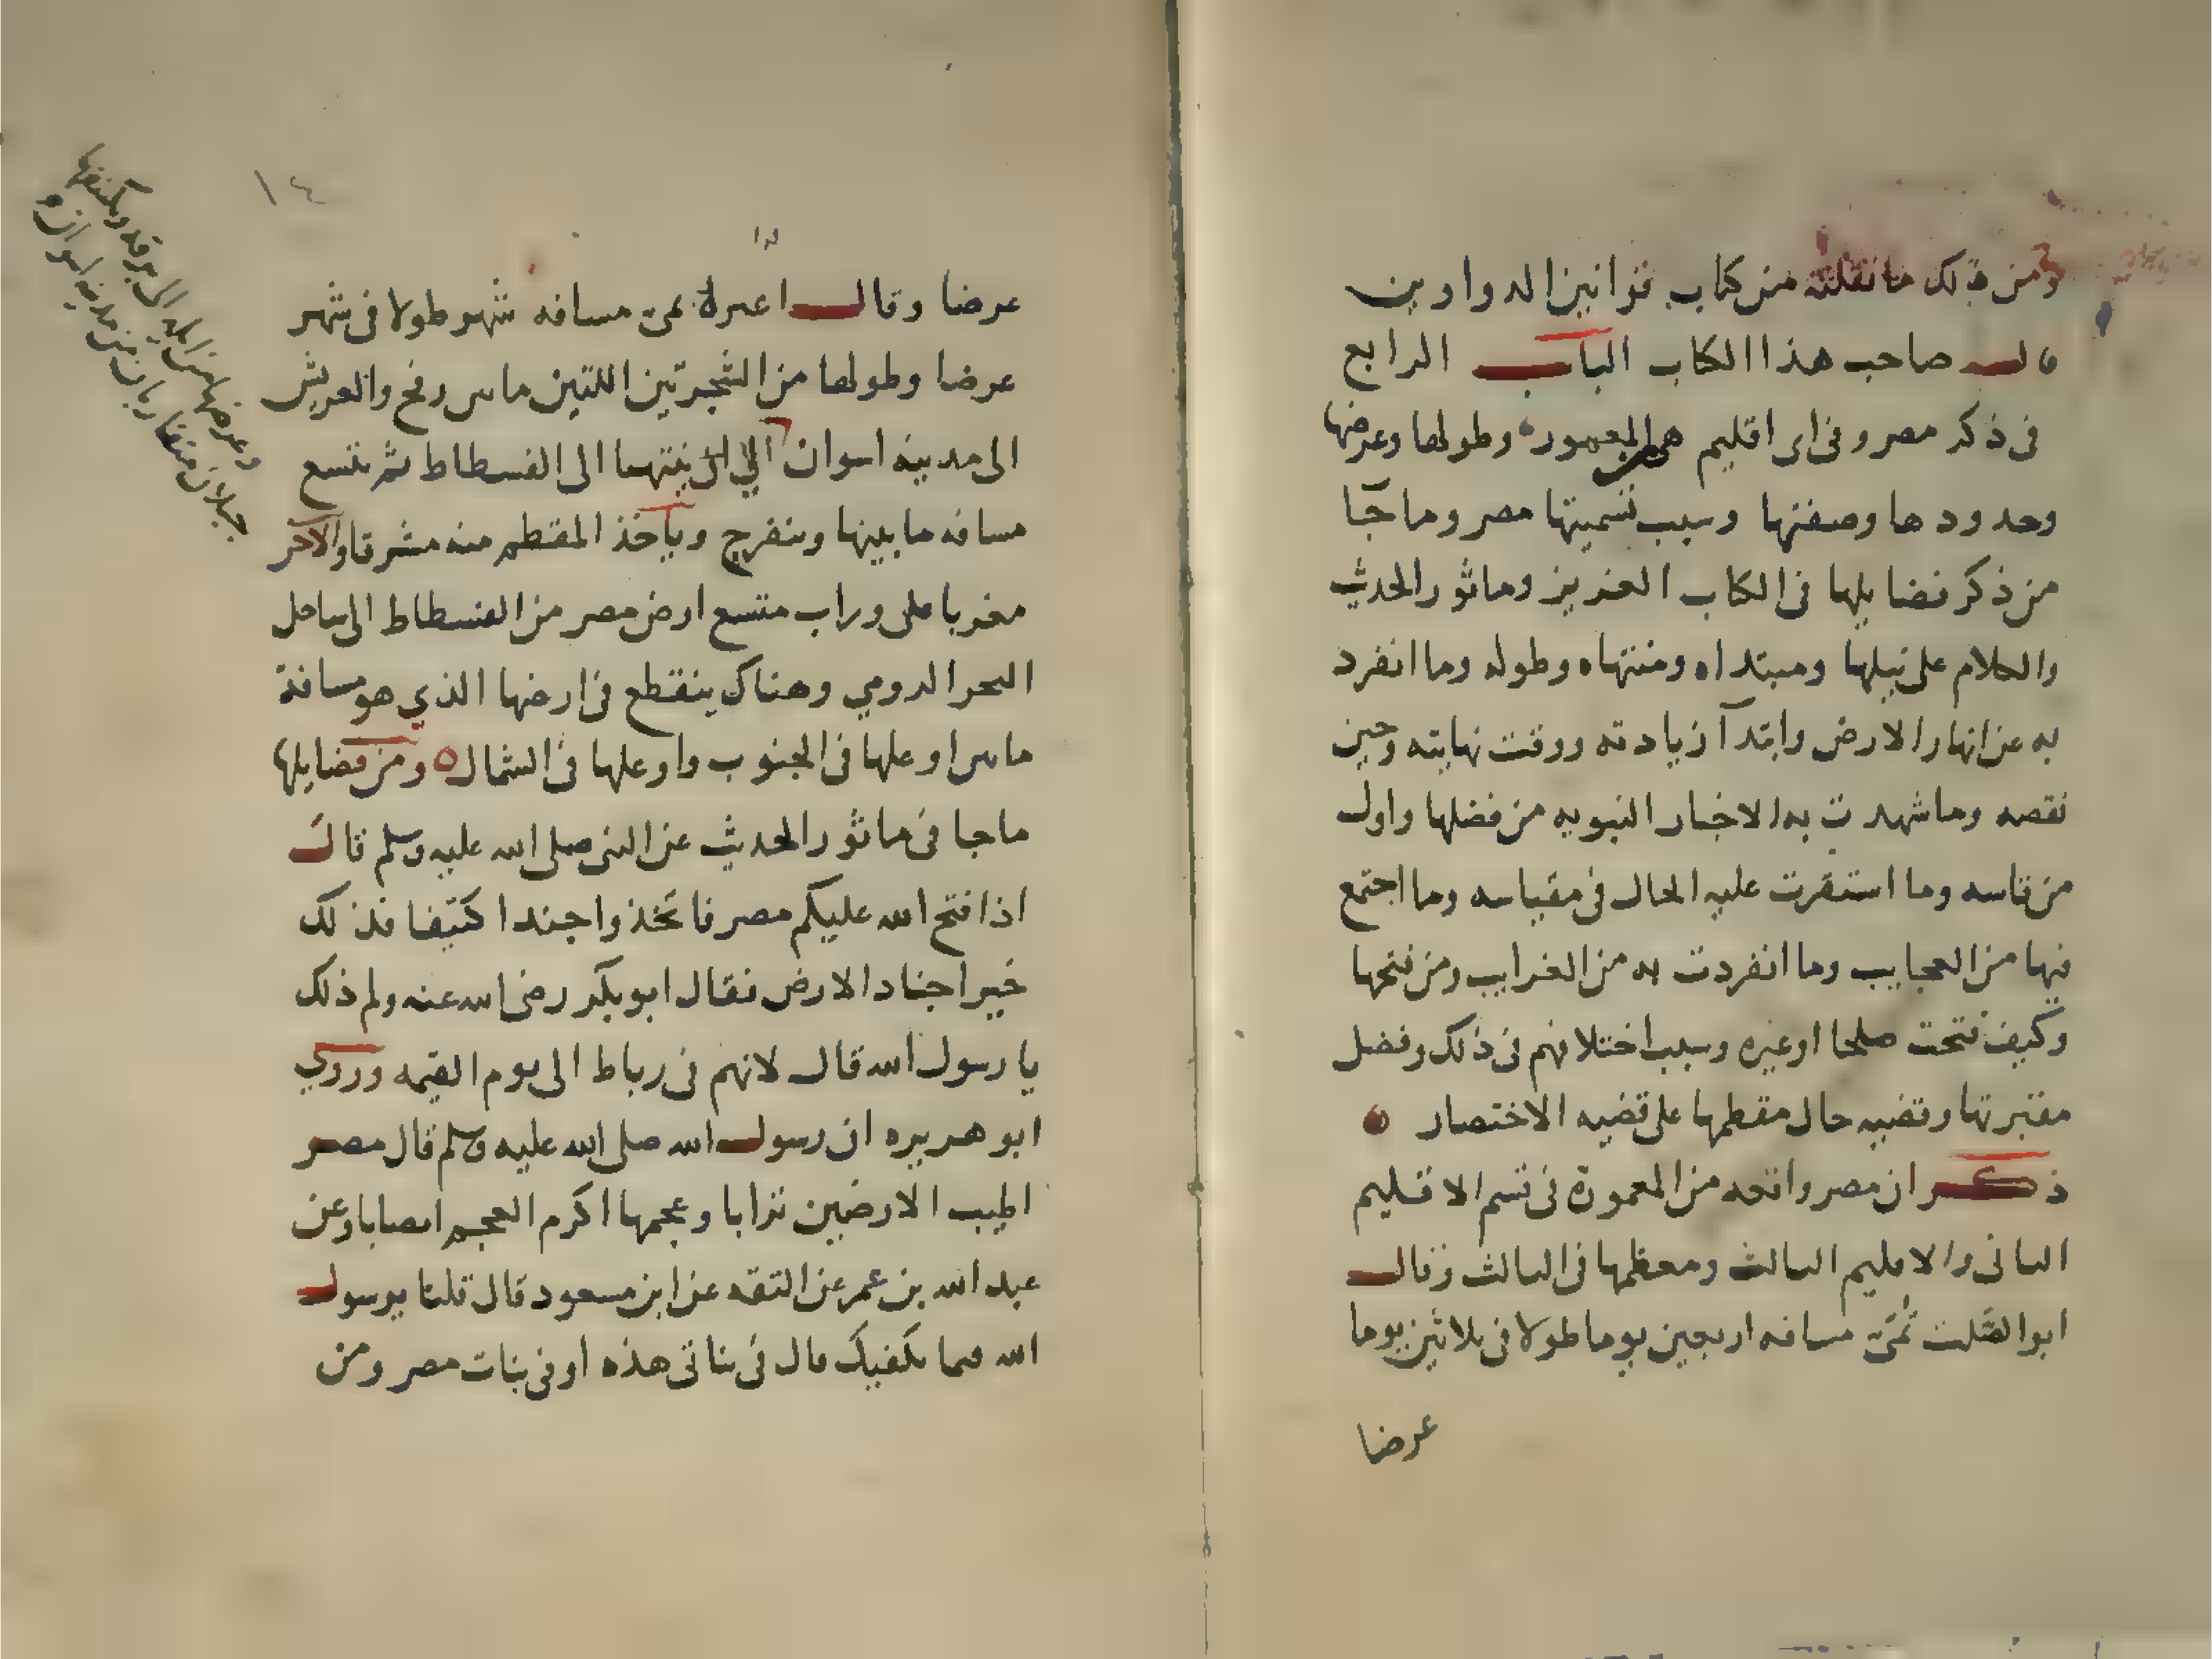 ومن ذلك ما نقلته من كتاب قوانين الدواوين
قال صاحب هذا الكتاب الباب الرابع
فى ذكر مصر وفى اى اقليم هى من المعمور وطولها وعرضها
وحدودها وصفتها وسبب تسميتها مصر وما جآ
من ذكر فضايلها فى الكتاب العزيز وماثور الحديث
والكلام على نيلها ومبتداه ومنتهاه وطوله وما انفرد
به عن انهار الارض وابتدآ زيادته ووقت نهايته وحين
نقصه وما شهدت به الاخبار النبويه من فضلها واول
من قاسه وما استقرت عليه الحال فى مقياسه وما اجتمع
فيها من العجايب وما انفردت به من الغرايب ومن فتحها
وكيف فتحت صلحا او غيره وسبب اختلافهم فى ذلك وفضل
مقبرتها وقضيه حال مقطمها على قضيه الاختصار
ذكر ان مصر واقعه من المعمورة فى قسم الاقليم
الثانى والاقليم الثالث ومعظمها فى الثالث وقال
ابو الصلت هى مسافه اربعين يوما طولا فى ثلاثين يوما
عرضا
١٤
عرضا وقال غيره هى مسافه شهر طولا فى شهر
عرضا وطولها من الشجرتين اللتين ما بين رفح والعريش
الى مدينه اسوان الى ان ينتهيا الى الفسطاط ثم يتسع
مسافه ما بينها وينفرج وياخذ المقطم منه مشرقا والآخر
مغربا على وراب متسع ارض مصر من الفسطاط الى ساحل
البحر الرومي وهناك ينقطع فى ارضها الذي هو مسافة
ما بين اوغلها فى الجنوب واوغلها فى الشمال ومن فضايلها
ما جا فى ماثور الحديث عن النبى صلى الله عليه وسلم قال
اذا فتح الله عليكم مصر فاتخذوا جندا كثيفا فذلك
خير اجناد الارض فقال ابو بكر رضى الله عنه ولم ذلك
يا رسول الله قال لانهم فى رباط الى يوم القيمه وروي
ابو هريره ان رسول الله صلى الله عليه وسلم قال مصر
اطيب الارضين ترابا وعجمها اكرم العجم انصابا وعن
عبد الله بن عمر عن الثقه عن ابن مسعود قال قلنا يرسول
الله فيما نكفنك قال فى بناتى هذه او فى بنات مصر ومن
وعرضها من ايله الى برقه ويكتنفها
جبلان متقاربان من مدينه اسوان